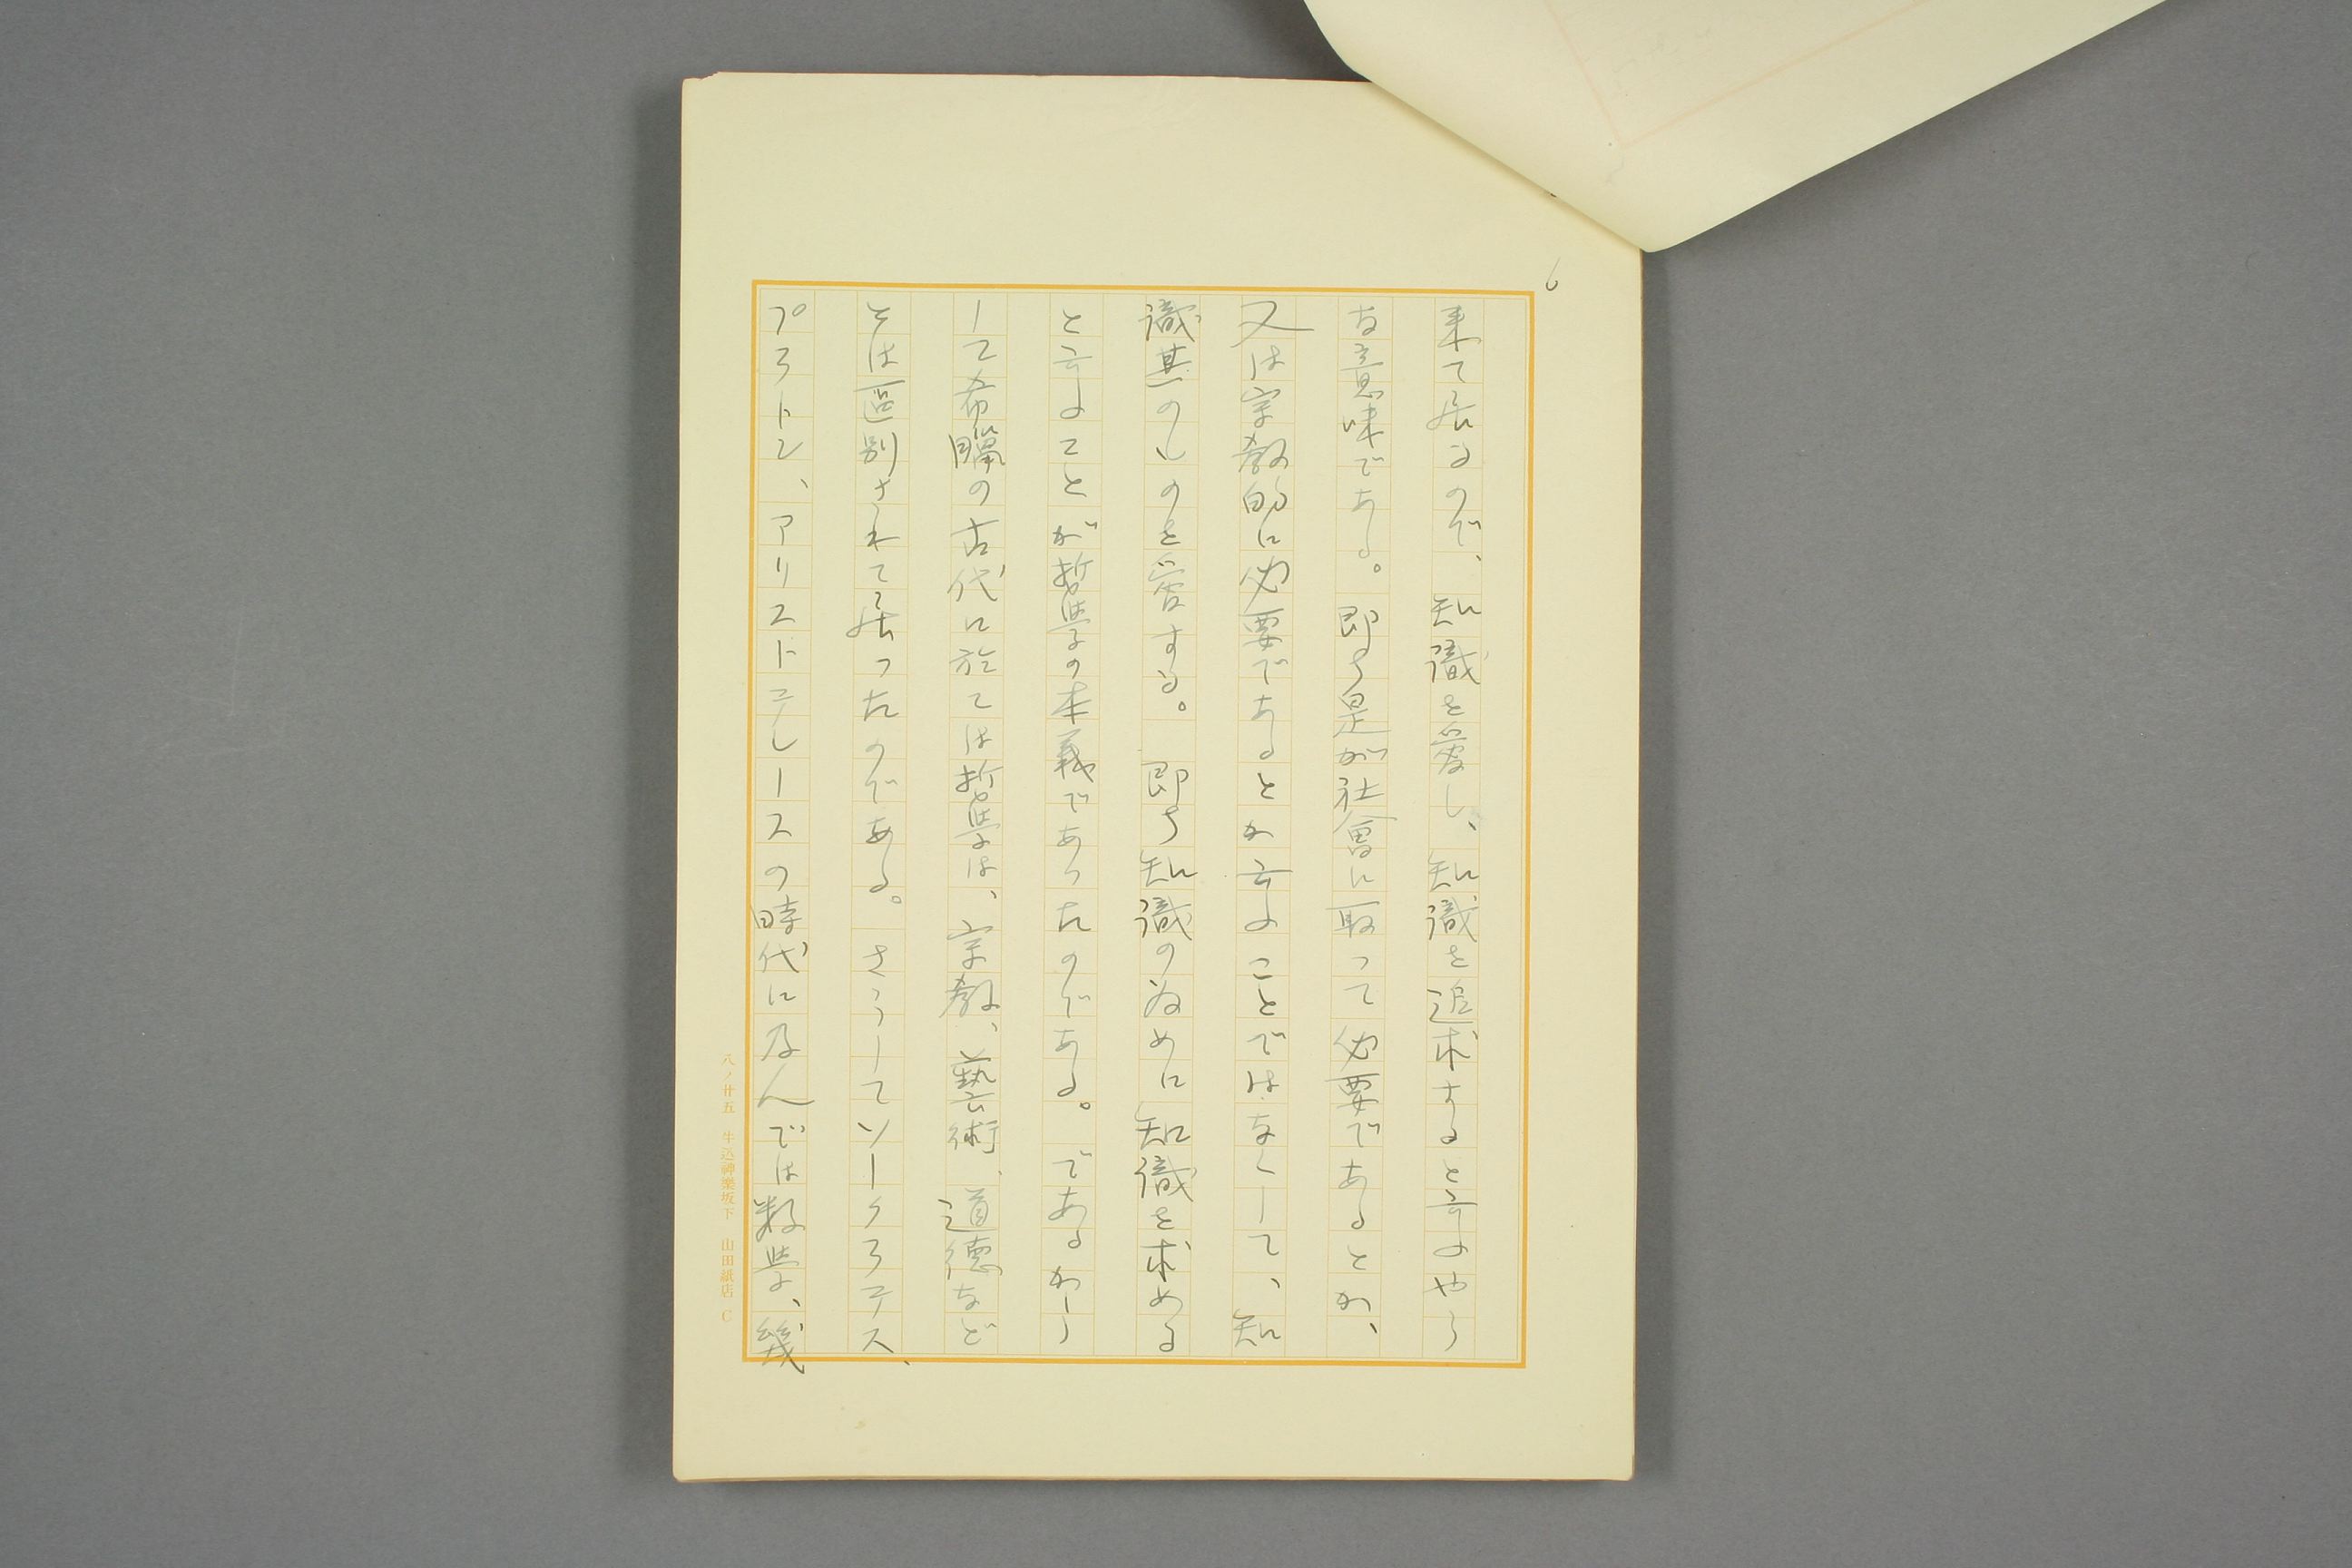 6
来て居るので、知識を愛し、知識を追求すると云ふやう
な意味である。即ち是が社會に取って必要であるとか、
又は宗教的に必要であるとか云ふことではなくして、知
識其のものを愛する。即ち知識の為めに知識を求める
と云ふことが哲學の本義であったのである。であるから
して希臘の古代に於ては哲學は、宗教、藝術、道徳など
とは區別されて居ったのである。さうしてソークラテス、
プラトン、アリストテレースの時代に及んでは数学、幾
八ノ廿五 牛込神樂坂下 山田紙店 C